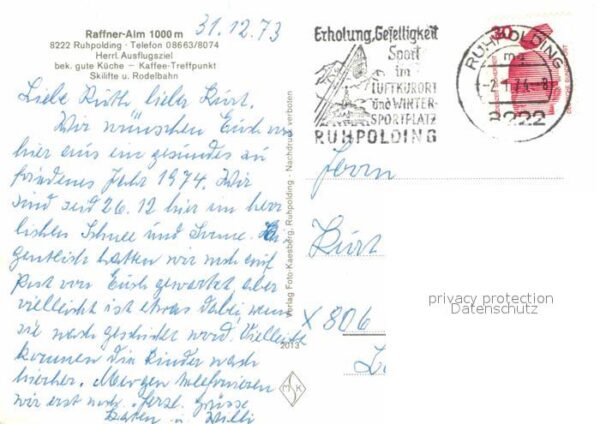 Raffner-Alm 1000 m
8222 Ruhpolding · Telefon 08663/8074
Herrl. Ausflugsziel
bek. gute Küche – Kaffee-Treffpunkt
Skilifte u. Rodelbahn
31.12.73
Liebe Ruth, lieber Kurt.
Wir wünschen Euch von
hier aus ein gesundes zu
friedenes Jahr 1974. Wir
sind seit 26.12 hier im herr
lichen Schnee und Sonne. Ei
gentlich hatten wir noch auf
Post von Euch gewartet aber
vielleicht ist etwas dabei, wenn
sie nach geschickt word. Vielleicht
kommen die Kinder nach
hierher. Morgen telefonieren
wir erst noch. Herzl. Grüsse
Willi
Verlag Foto-Kaesberg, Ruhpolding · Nachdruck verboten
2013
M K
Erholung, Geselligkeit
Sport
im
LUFTKURORT
und WINTER-
SPORTPLATZ
RUHPOLDING
30
RUHPOLDING
8222
Herrn
Kurt
X 806
privacy protection
Datenschutz